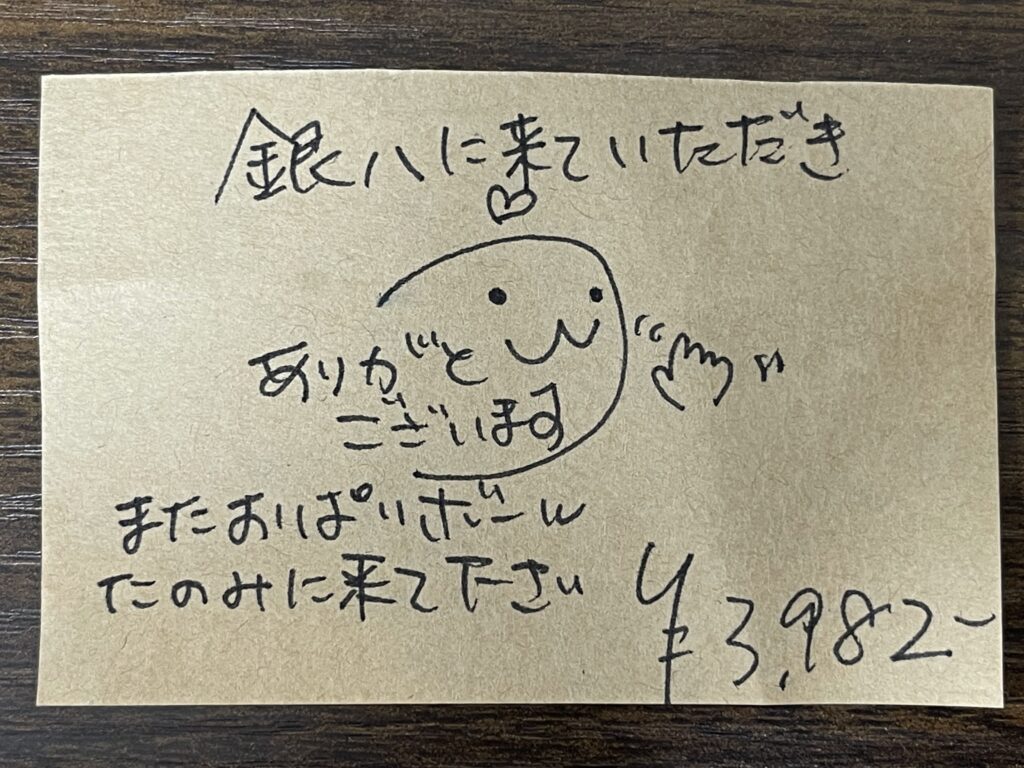 銀八に来ていただき
ありがと
ございます
またおっぱいボール
たのみに来て下さい
¥3,982-